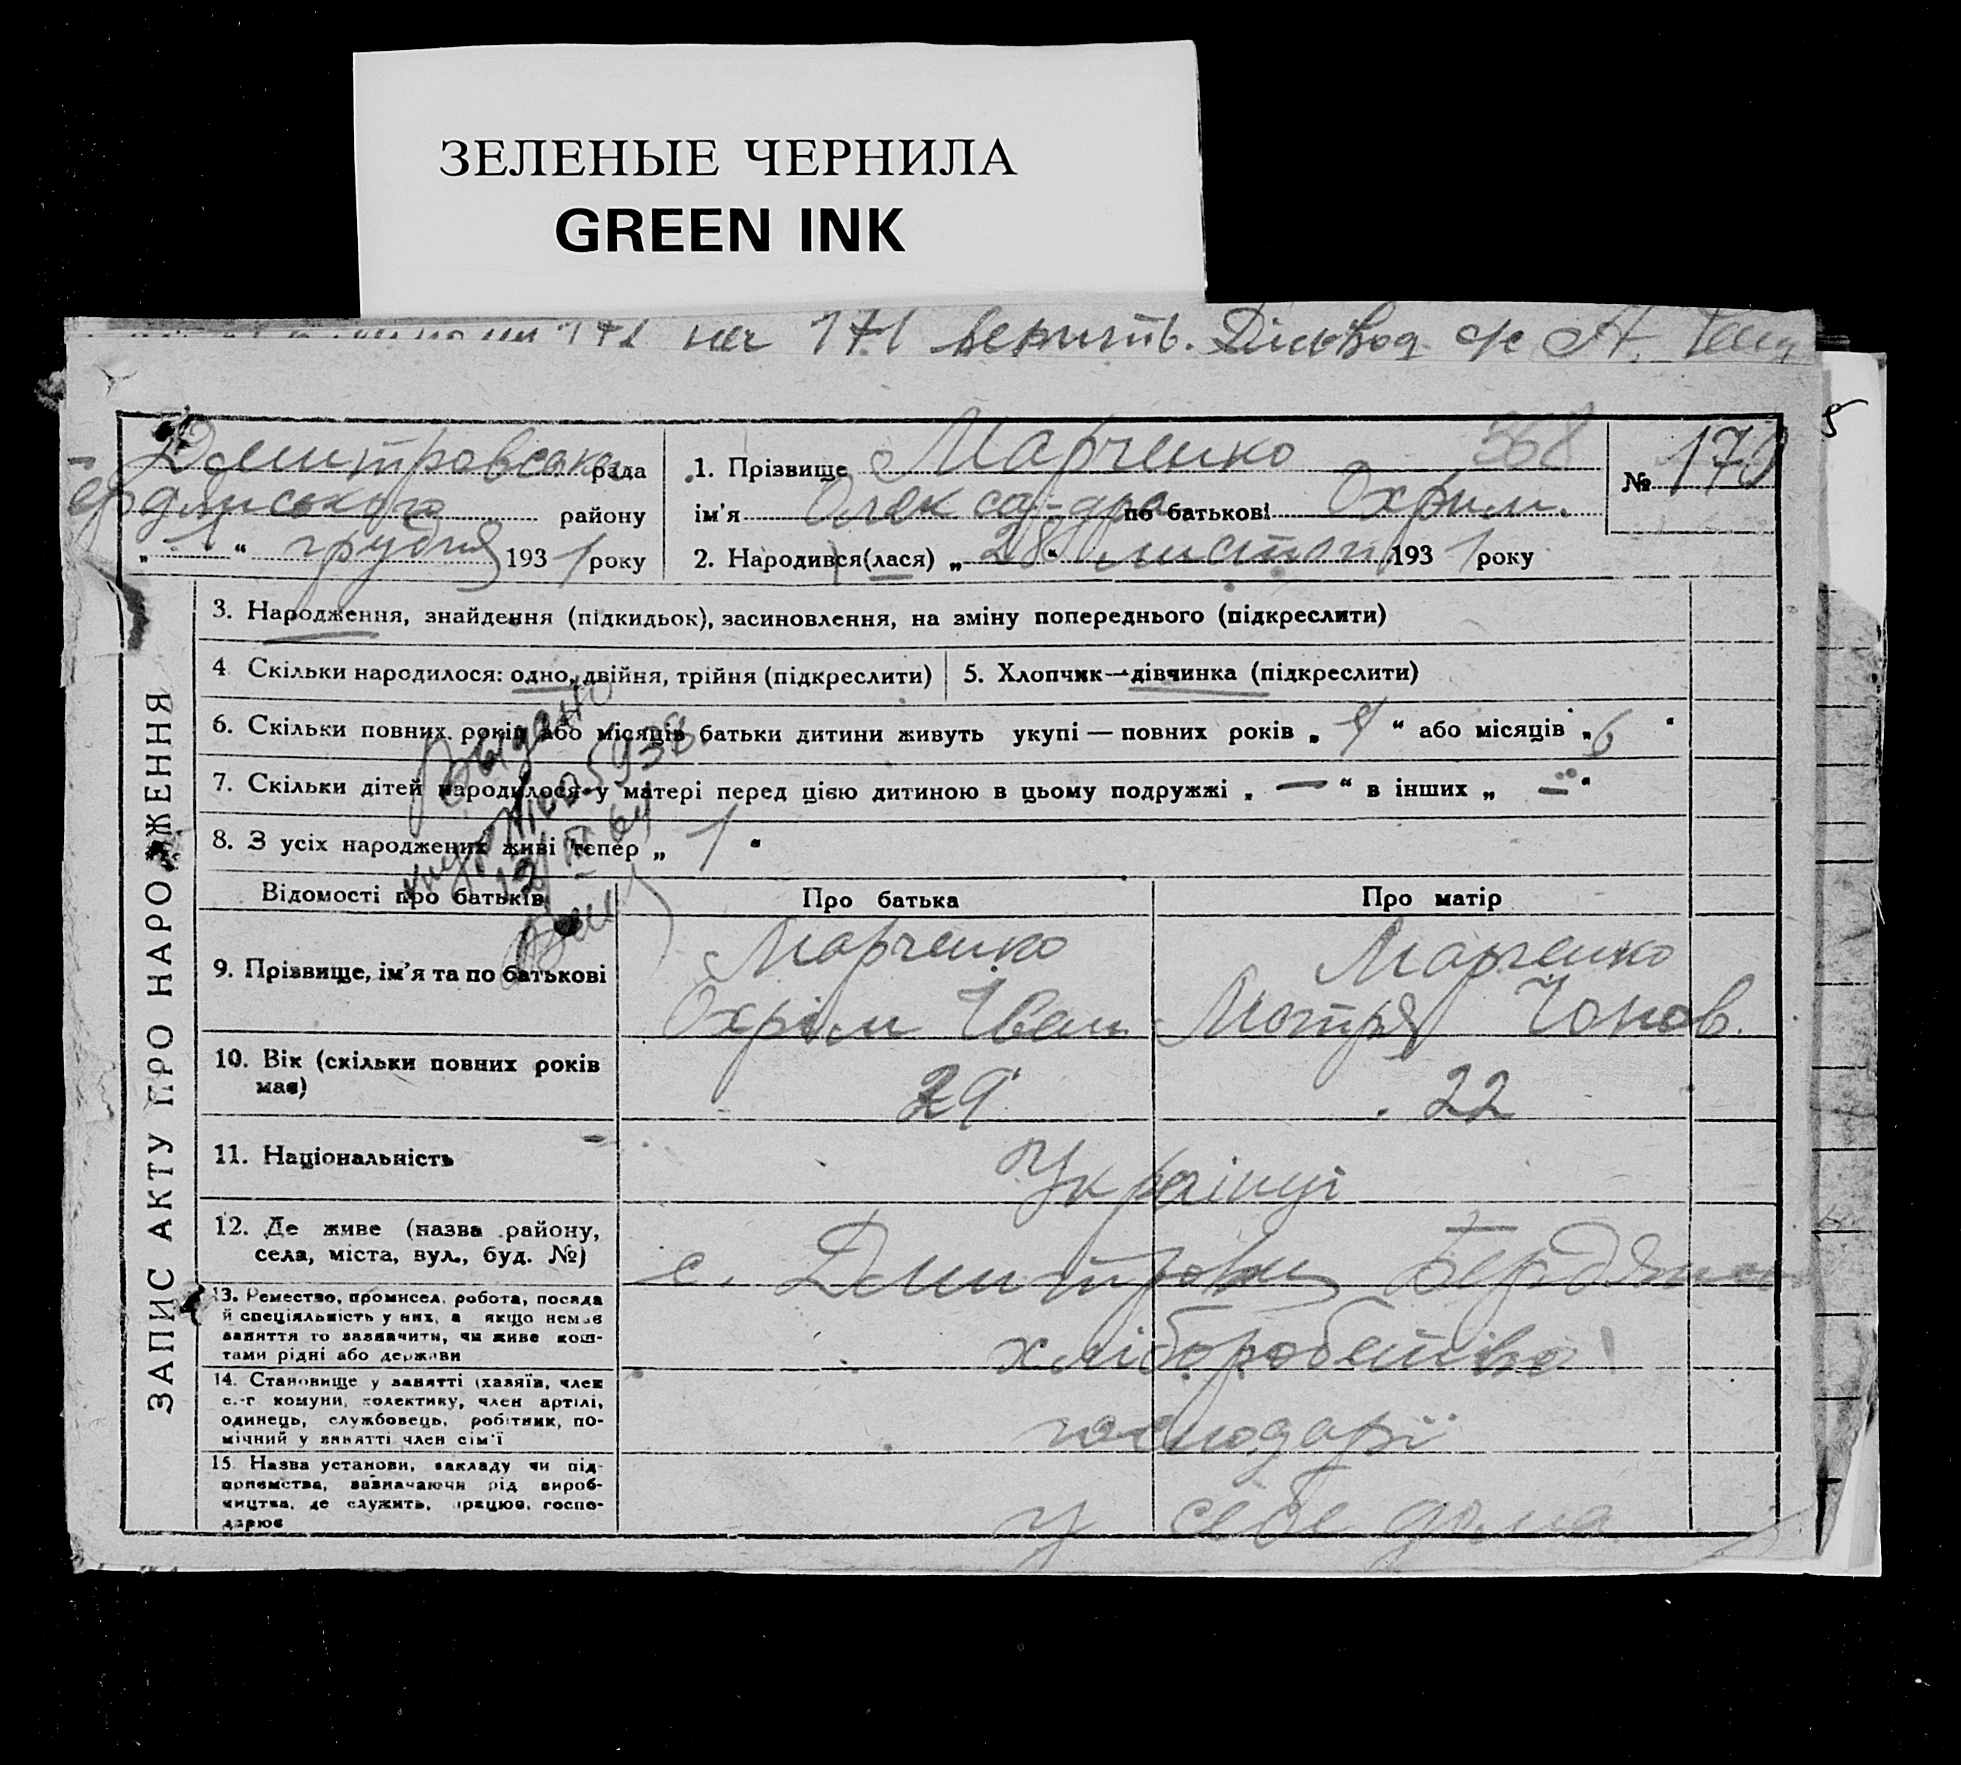 ЗЕЛЕНЫЕ ЧЕРНИЛА
GREEN INK
171 на 171 верить. Діловод
Дмитровська рада
ердянського району
„ 1 “ грудня 1931 року
1. Прізвище Марченко 368
ім'я Олександра по батькові Охрим.
2. Народився(лася) „ 28 “ листоп 1931 року
№ 170
ЗАПИС АКТУ ПРО НАРОДЖЕННЯ
3. Народження, знайдення (підкидьок), засиновлення, на зміну попереднього (підкреслити)
4 Скільки народилося: одно, двійня, трійня (підкреслити)
5. Хлопчик—дівчинка (підкреслити)
6. Скільки повних років або місяців батьки дитини живуть укупі — повних років „ “ або місяців „ 6 “
7. Скільки дітей народилося у матері перед цією дитиною в цьому подружжі „ — “ в інших „ — “
8. З усіх народжених живі тепер „ 1 “
Выдано
Відомості про батьків
Про батька
Про матір
9. Прізвище, ім'я та по батькові
Марченко
Охрім Іван
Марченко
Мотря
10. Вік (скільки повних років має)
29
22
11. Національність
Українці
12. Де живе (назва району,
села, міста, вул., буд. №)
с. Дмитровки Бердянськ
13. Ремество, промисел, робота, посада
й спеціяльність у них, а якщо немає
заняття то зазначити, чи живе кош-
тами рідні або держави
хліборобство
14. Становище у занятті (хазяїн, член
с.-г комуни, колективу, член артілі,
одинець, службовець, робітник, по-
мічний у занятті член сім'ї
господарі
15. Назва установи, закладу чи під-
приємства, зазначаючи рід вироб-
ництва, де служить, працює, госпо-
дарює
у себе дома